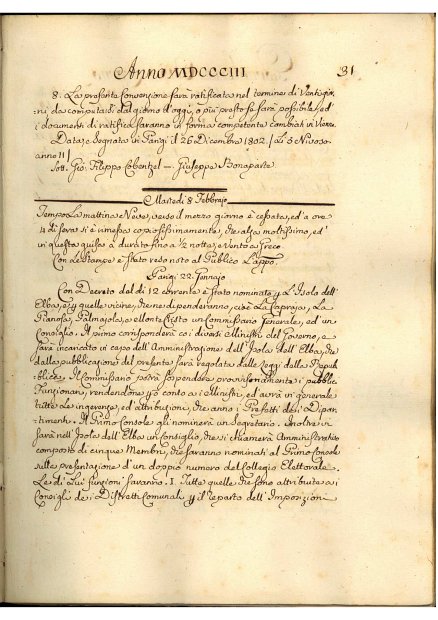 Anno MDCCCIII 31
8. La presente Convenzione sarà ratificata nel termine di Venti gior,
ni da computarsi dal giorno d'oggi, o più presto se sarà possibile, ed
i documenti di ratifica saranno in forma competente cambiati in
Data, e Segnata in Parigi il 26 Dicembre 1802. / Li 5 Nivoso.
anno 11 /
Sot. Gio. Filippo Cobentzel — Giuseppe Bonaparte.
Martedì 8 Febbrajo
Tempo La mattina e Neve, verso il mezzo giorno è cessata, ed a ore
4 di sera si è umessa copiosissimamente, che alza moltissimo, ed
in questa guisa à durato fino a ½ notte, e Vento a Greco
Con le Stampe è stato reso noto al Publico L'app.o
Parigi 22. Gennajo
Con Decreto del dì 12 corrente è stato nominato p L'Isola dell'
Elba, e p quelle vicine, che ne dipenderanno, cioè La Capraja, La
Pianosa, Palmajola, e Monte Cristo un Commissario Generale, ed un
Consiglio. Il primo corrisponderà coi diversi Ministri del Governo, e
sarà incaricato in capo dell'Amministrazione dell'Isola dell'Elba, che
dalla pubblicazione del presente sarà regolata dalle Leggi della Repub
blica. Il Commissario potrà sospendere provvisoriamente i pubblici
Funzionari, rendendone p.o conto a i Ministri, ed avrà in generale
tutte le ingerenze, ed attribuzioni, che anno i Prefetti dei Dipar,
timenti. Il Primo Console gli nominerà un Segretario. Inoltre vi
sarà nell'Isola dell'Elba un Consiglio, che si chiamerà Amministrativo
composto di cinque Membri, che saranno nominati al Primo Console
sulla presentazione d'un doppio numero del Collegio Elettorale.
Le di Lui funzioni saranno. I. Tutte quelle che sono attribuite a i
Consigli de i Distretti Comunali p il reparto dell'Imposizioni